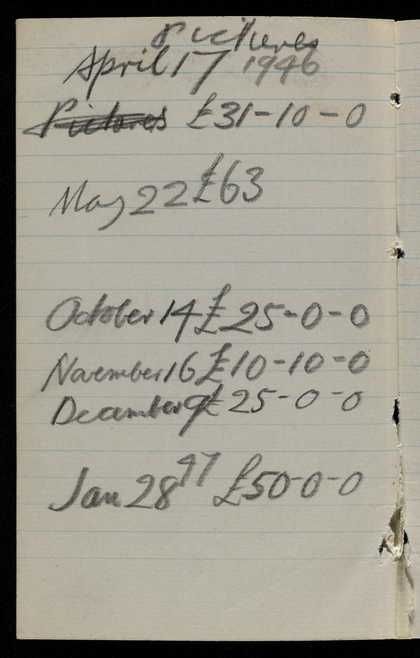 Pictures
April 17 1946
Pictures £31-10-0
May 22 £63
October 14 £25-0-0
November 16 £10-10-0
December 9 £25-0-0
Jan 28 47 £50-0-0